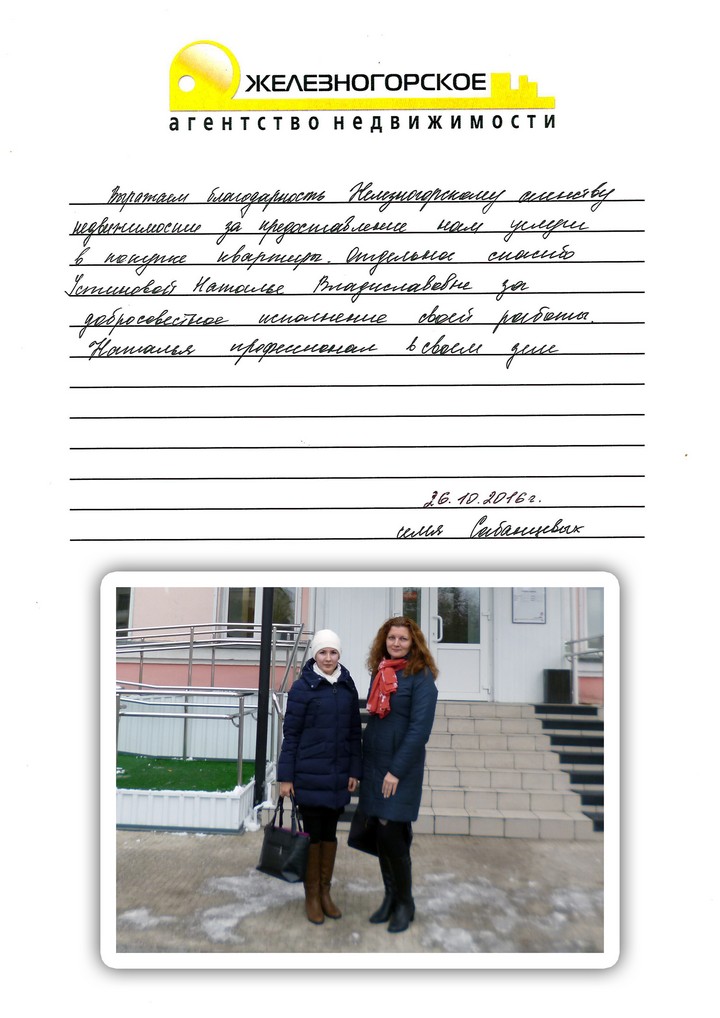 ЖЕЛЕЗНОГОРСКОЕ
агентство недвижимости
Выражаем благодарность Железногорскому агенству
недвижимости за предоставление нам услуги
в покупке квартиры. Отдельное спасибо
Устиновой Наталье Владиславовне за
добросовестное исполнение своей работы.
Наталья професионал в своем деле
26.10.2016г.
семя Сабанцевых